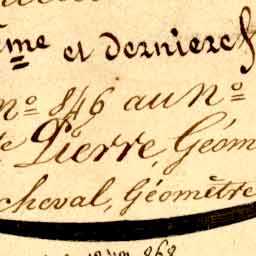 ème et dernière
no 846 au No
Pierre, Géom
cheval, Géomètre
868